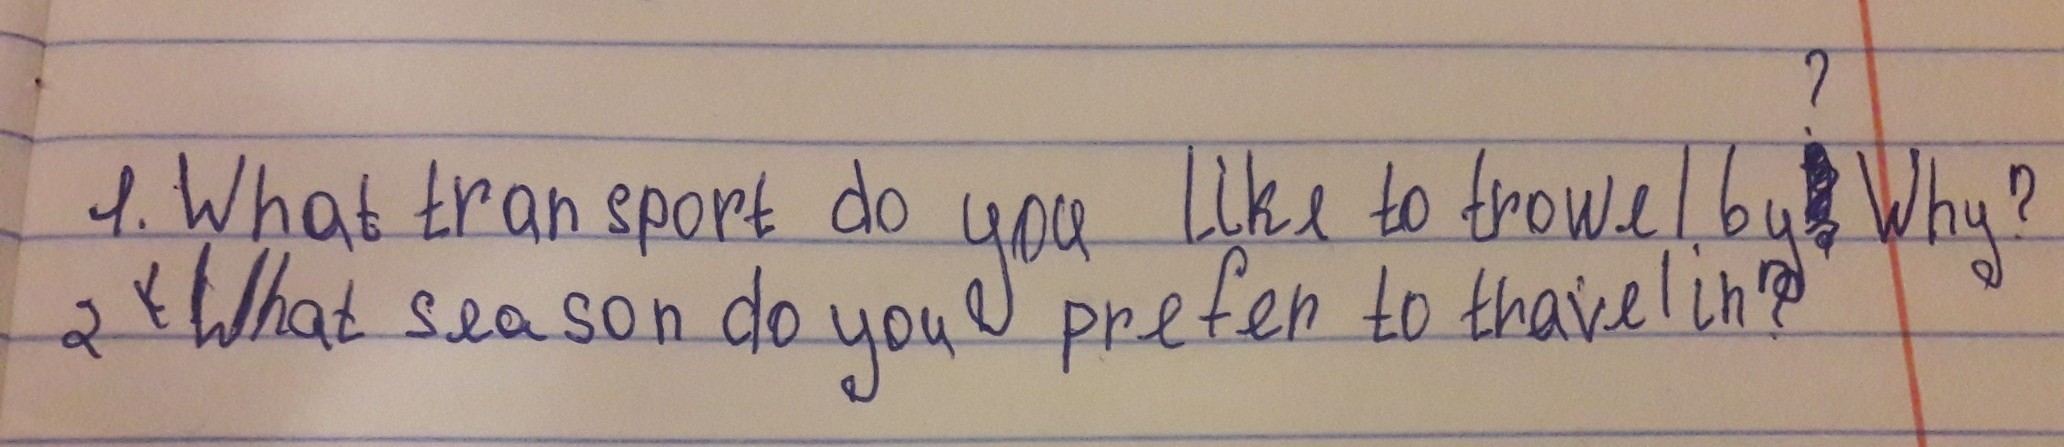 1. What transport do you like to trowel by? Why?
2 What season do you prefer to travel in?